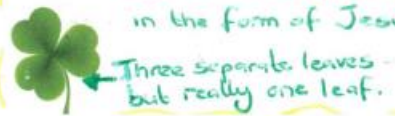 in the form of Jesu
Three separate leaves -
but really one leaf.